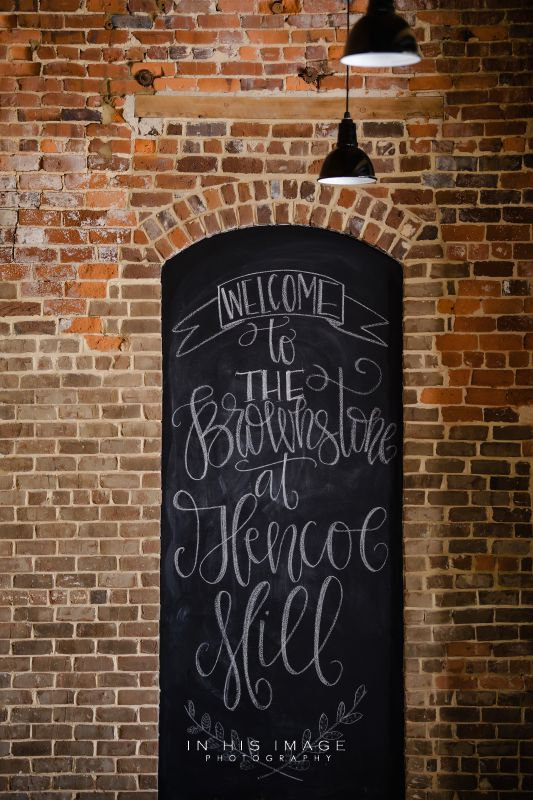 WELCOME
to
THE
Brownstone
at
Hencoe
Hill
IN HIS IMAGE
PHOTOGRAPHY